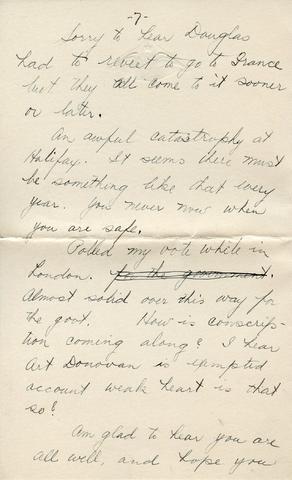 -7-
Sorry to hear Douglas
had to revert to go to France
but they all come to it sooner
or later.
An awful catastrophy at
Halifax. It seems there must
be something like that every
year. You never now when
you are safe.
Polled my vote while in
London. for the government.
Almost solid over this way for
the govt. How is conscrip-
tion coming along? I hear
Art Donovan is exempted
account weak heart is that
so?
Am glad to hear you are
all well, and hope you